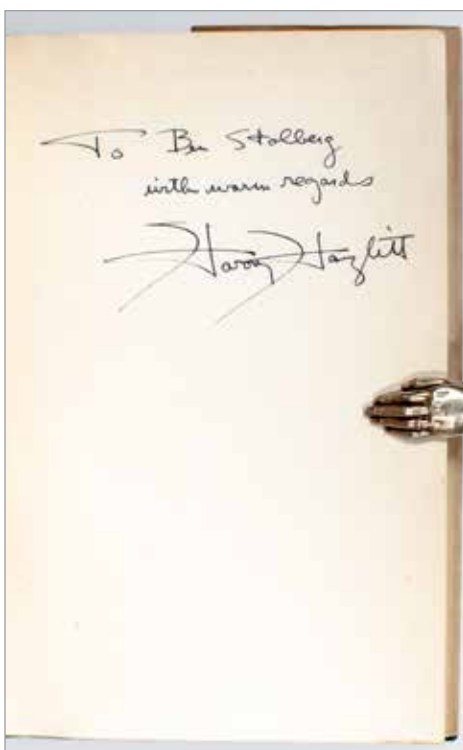 To Ben Stolberg
with warm regards
Harry Hazlitt